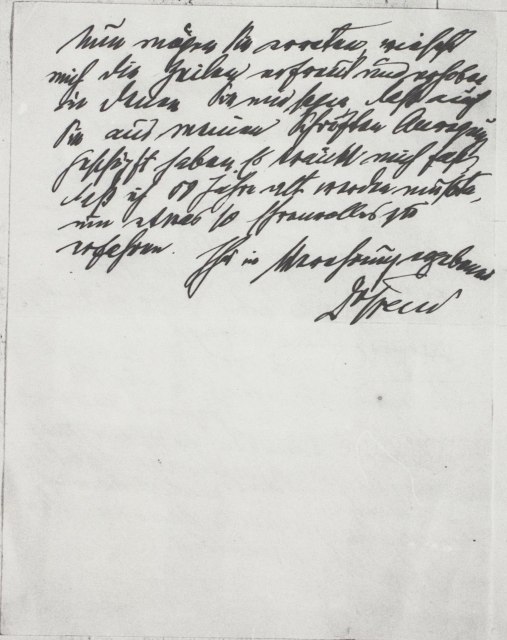 Nun mögen Sie erraten, wie sehr
mich die Zeilen erfreut und erhoben
in denen Sie mir sagen, daß auch
Sie aus meinen Schriften Anregung
geschöpft haben. Es kränkt mich fast,
daß ich 68 Jahre alt werden mußte,
um etwas so Ehrenvolles zu
erfahren.
Ihr in Verehrung ergebener
Dr Freud